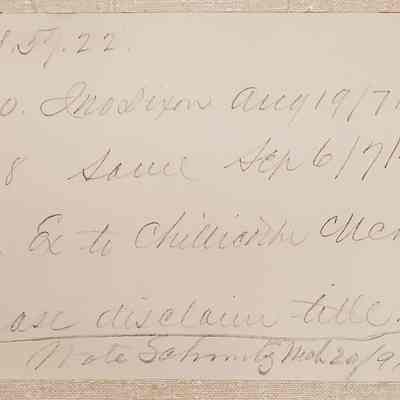 59.22.
o. Jno Dixon Aug 19/7
8 Same Sep 6/7
Ex to Chillicothe
ase disclaim title.
Wrote Schmitz Mch 20/9